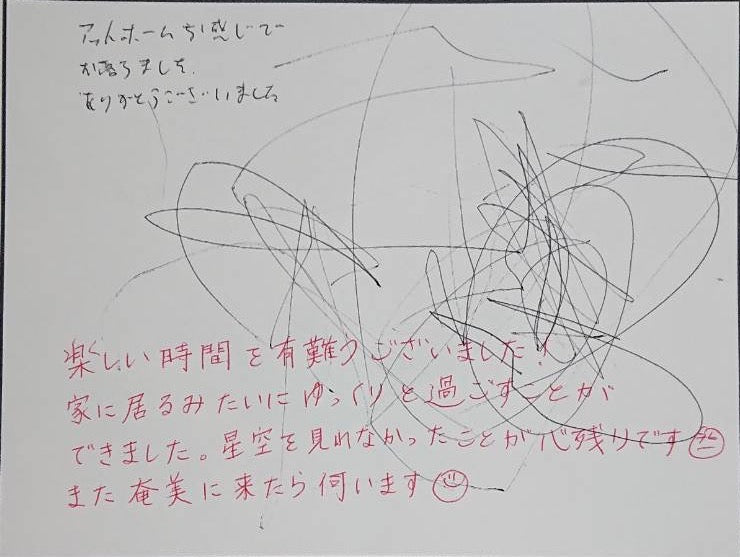 アットホームな感じで
お世話になりました。
ありがとうございました
楽しい時間を有難うございました!
家に居るみたいにゆっくりと過ごすことが
できました。星空を見れなかったことが心残りです
また奄美に来たら伺います